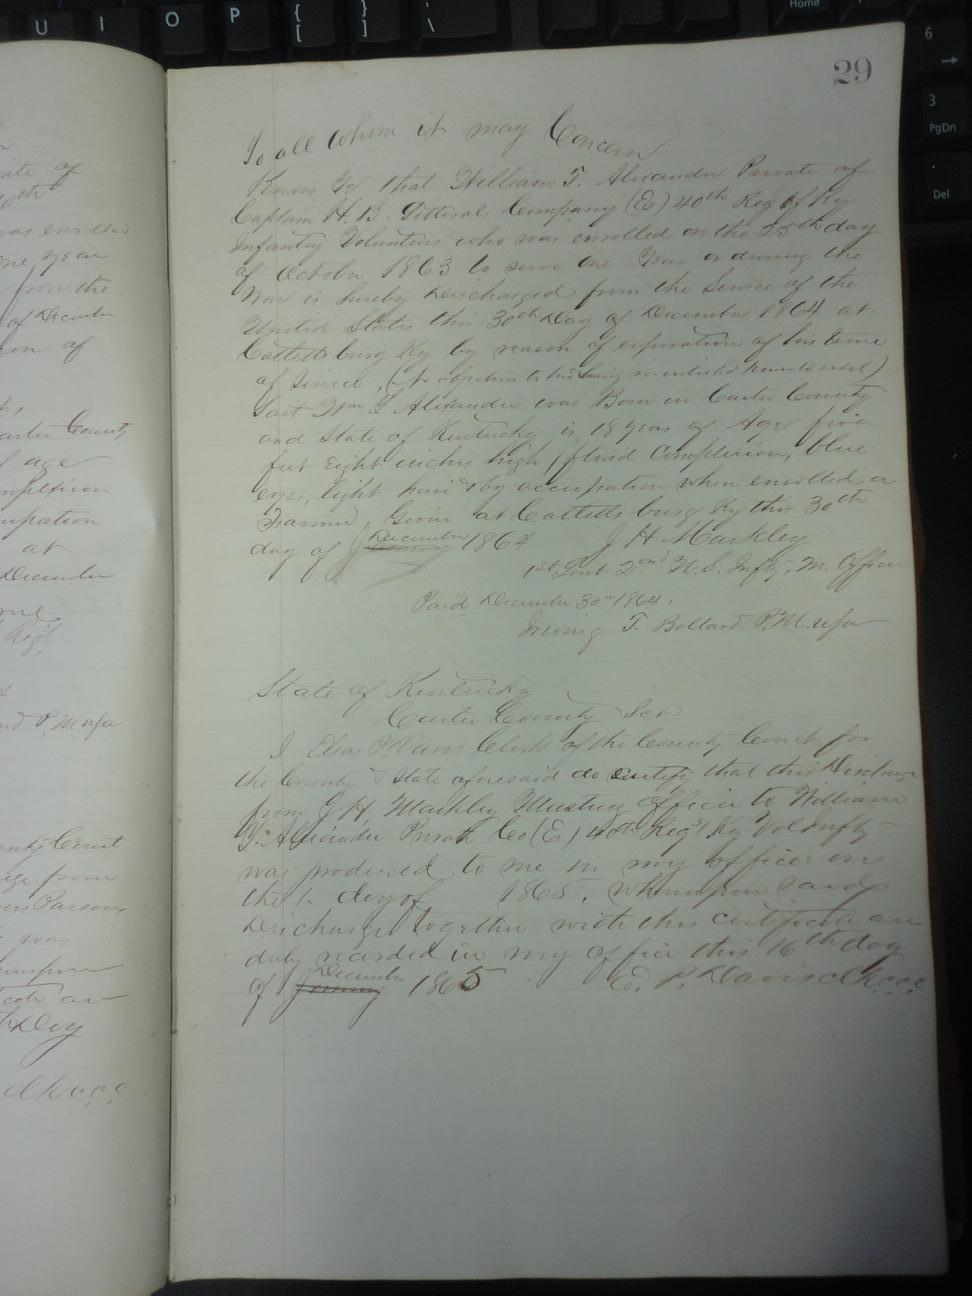 U I O P { [ } ] ' \ Home
6 →
3 PgDn
. Del
29
To all whom it may Concern
Know Ye that William T. Alexander Private of
Captain H. B. Company (E) 40th Reg of Ky
Infantry Volunteers who was enrolled on the 25th day
of October 1863 to serve one Year or during the
War is hereby Discharged from the Service of the
United States this 30th Day of December 1864 at
Cattettsburg Ky by reason of expiration of his time
of Service, (No objection to his being re-enlisted known to exist)
Said Wm T Alexander was Born in Carter County
and State of Kentucky, is 18 years of Age five
feet Eight inches high, florid Complexion, blue
eyes, light hair & by occupation when enrolled a
Farmer, Given at Cattettsburg Ky this 30th
day of January December 1864 J H Mackley
1st Lieut 2nd U.S. Infty, M. Officer
Paid December 30th 1864.
T. Bollard P.M. usa
State of Kentucky
Carter County Sct
I Elias P. Davis Clerk of the County Court for
the County & State aforesaid do certify that this Discharge
from J H Mackley Mustering Officer to William
T. Alexander Private Co (E) 40th Regt Ky Vol Infty
was produced to me in my office on
the 1. day of 1865, whereupon said
Discharge together with this certificate are
duly recorded in my office this 16th day
of January December 1865 E. P. Davis clk c.c.c.
ate of
was enrolled
one year
from the
of December
on of
Carter County
of age
complexion
occupation
at
December
Regt
P. M usa
County Court
from
Parsons
was
are
Day
clk c.c.c